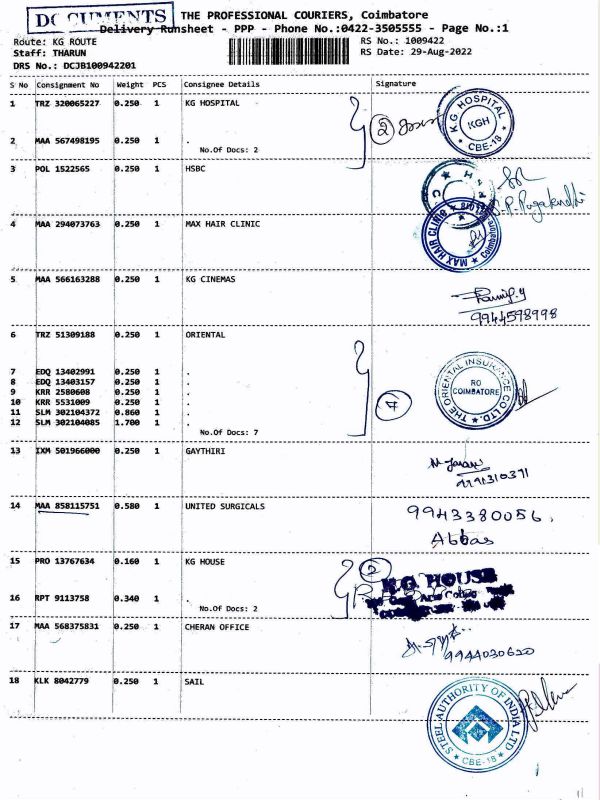 DOCUMENTS
THE PROFESSIONAL COURIERS, Coimbatore
Delivery Runsheet - PPP - Phone No.:0422-3505555 - Page No.:1
Route: KG ROUTE
RS No.: 1009422
Staff: THARUN
RS Date: 29-Aug-2022
DRS No.: DCJB100942201
S No Consignment No Weight PCS Consignee Details Signature
1 TRZ 320065227 0.250 1 KG HOSPITAL
2
KG HOSPITAL
KGH
CBE-18
2 MAA 567498195 0.250 1 .
No.Of Docs: 2
3 POL 1522565 0.250 1 HSBC
4 MAA 294073763 0.250 1 MAX HAIR CLINIC
MAX HAIR CLINIC
Coimbatore
5 MAA 566163288 0.250 1 KG CINEMAS
9944598998
6 TRZ 51309188 0.250 1 ORIENTAL
THE ORIENTAL INSURANCE CO LTD.
RO
COIMBATORE
7 EDQ 13402991 0.250 1 .
8 EDQ 13403157 0.250 1 .
9 KRR 2580608 0.250 1 .
10 KRR 5531009 0.250 1 .
11 SLM 302104372 0.860 1 .
12 SLM 302104085 1.700 1 .
7
No.Of Docs: 7
13 IXM 501966000 0.250 1 GAYTHIRI
14 MAA 858115751 0.580 1 UNITED SURGICALS
9943380056.
Abbas
15 PRO 13767634 0.160 1 KG HOUSE
2
K.G. HOUSE
16 RPT 9113758 0.340 1 .
No.Of Docs: 2
17 MAA 568375831 0.250 1 CHERAN OFFICE
9944030620
18 KLK 8042779 0.250 1 SAIL
STEEL AUTHORITY OF INDIA LTD
CBE-18